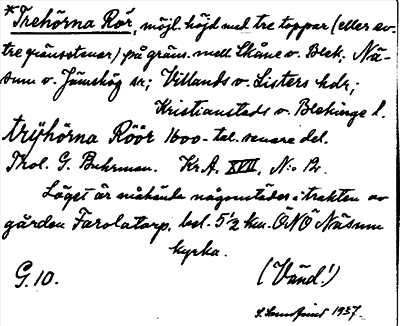 *Trehörna Rör, möjl. höjd med tre toppar (eller ev.
tre gränsstenar) på gräns. mell. Skåne o. Blek., Nä-
sum o. Jämshög sr; Villands o. Listers hdr;
Kristianstads o. Blekinge l.
trijhörna Röör 1600-tal. senare del.
Thol. G. Buhrman. Kr.A. XVII, N:o 12.
Läget är måhända någonstädes i trakten av
gården Farolatorp, bel. 5 1/2 km. ÖNÖ Näsum
kyrka.
G. 10. (Vänd!)
1937.